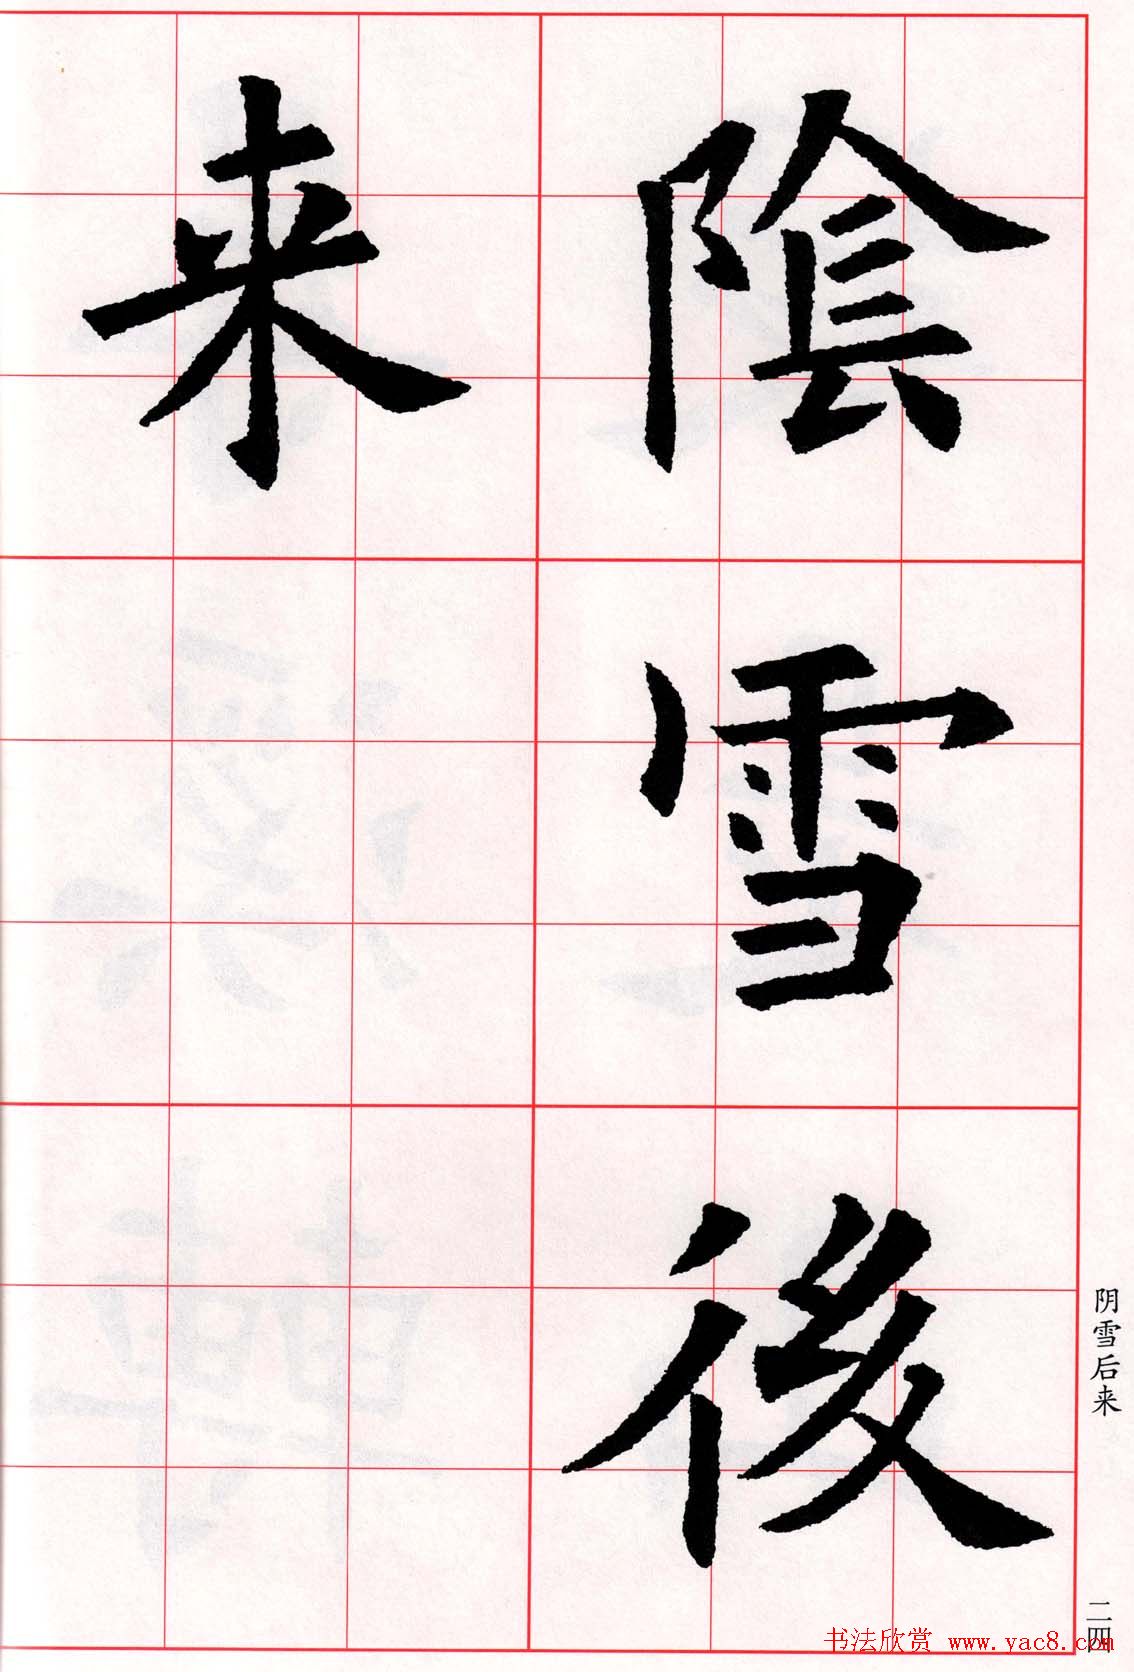 陰雪後
来
阴雪后来
二四
书法欣赏 www.yac8.com